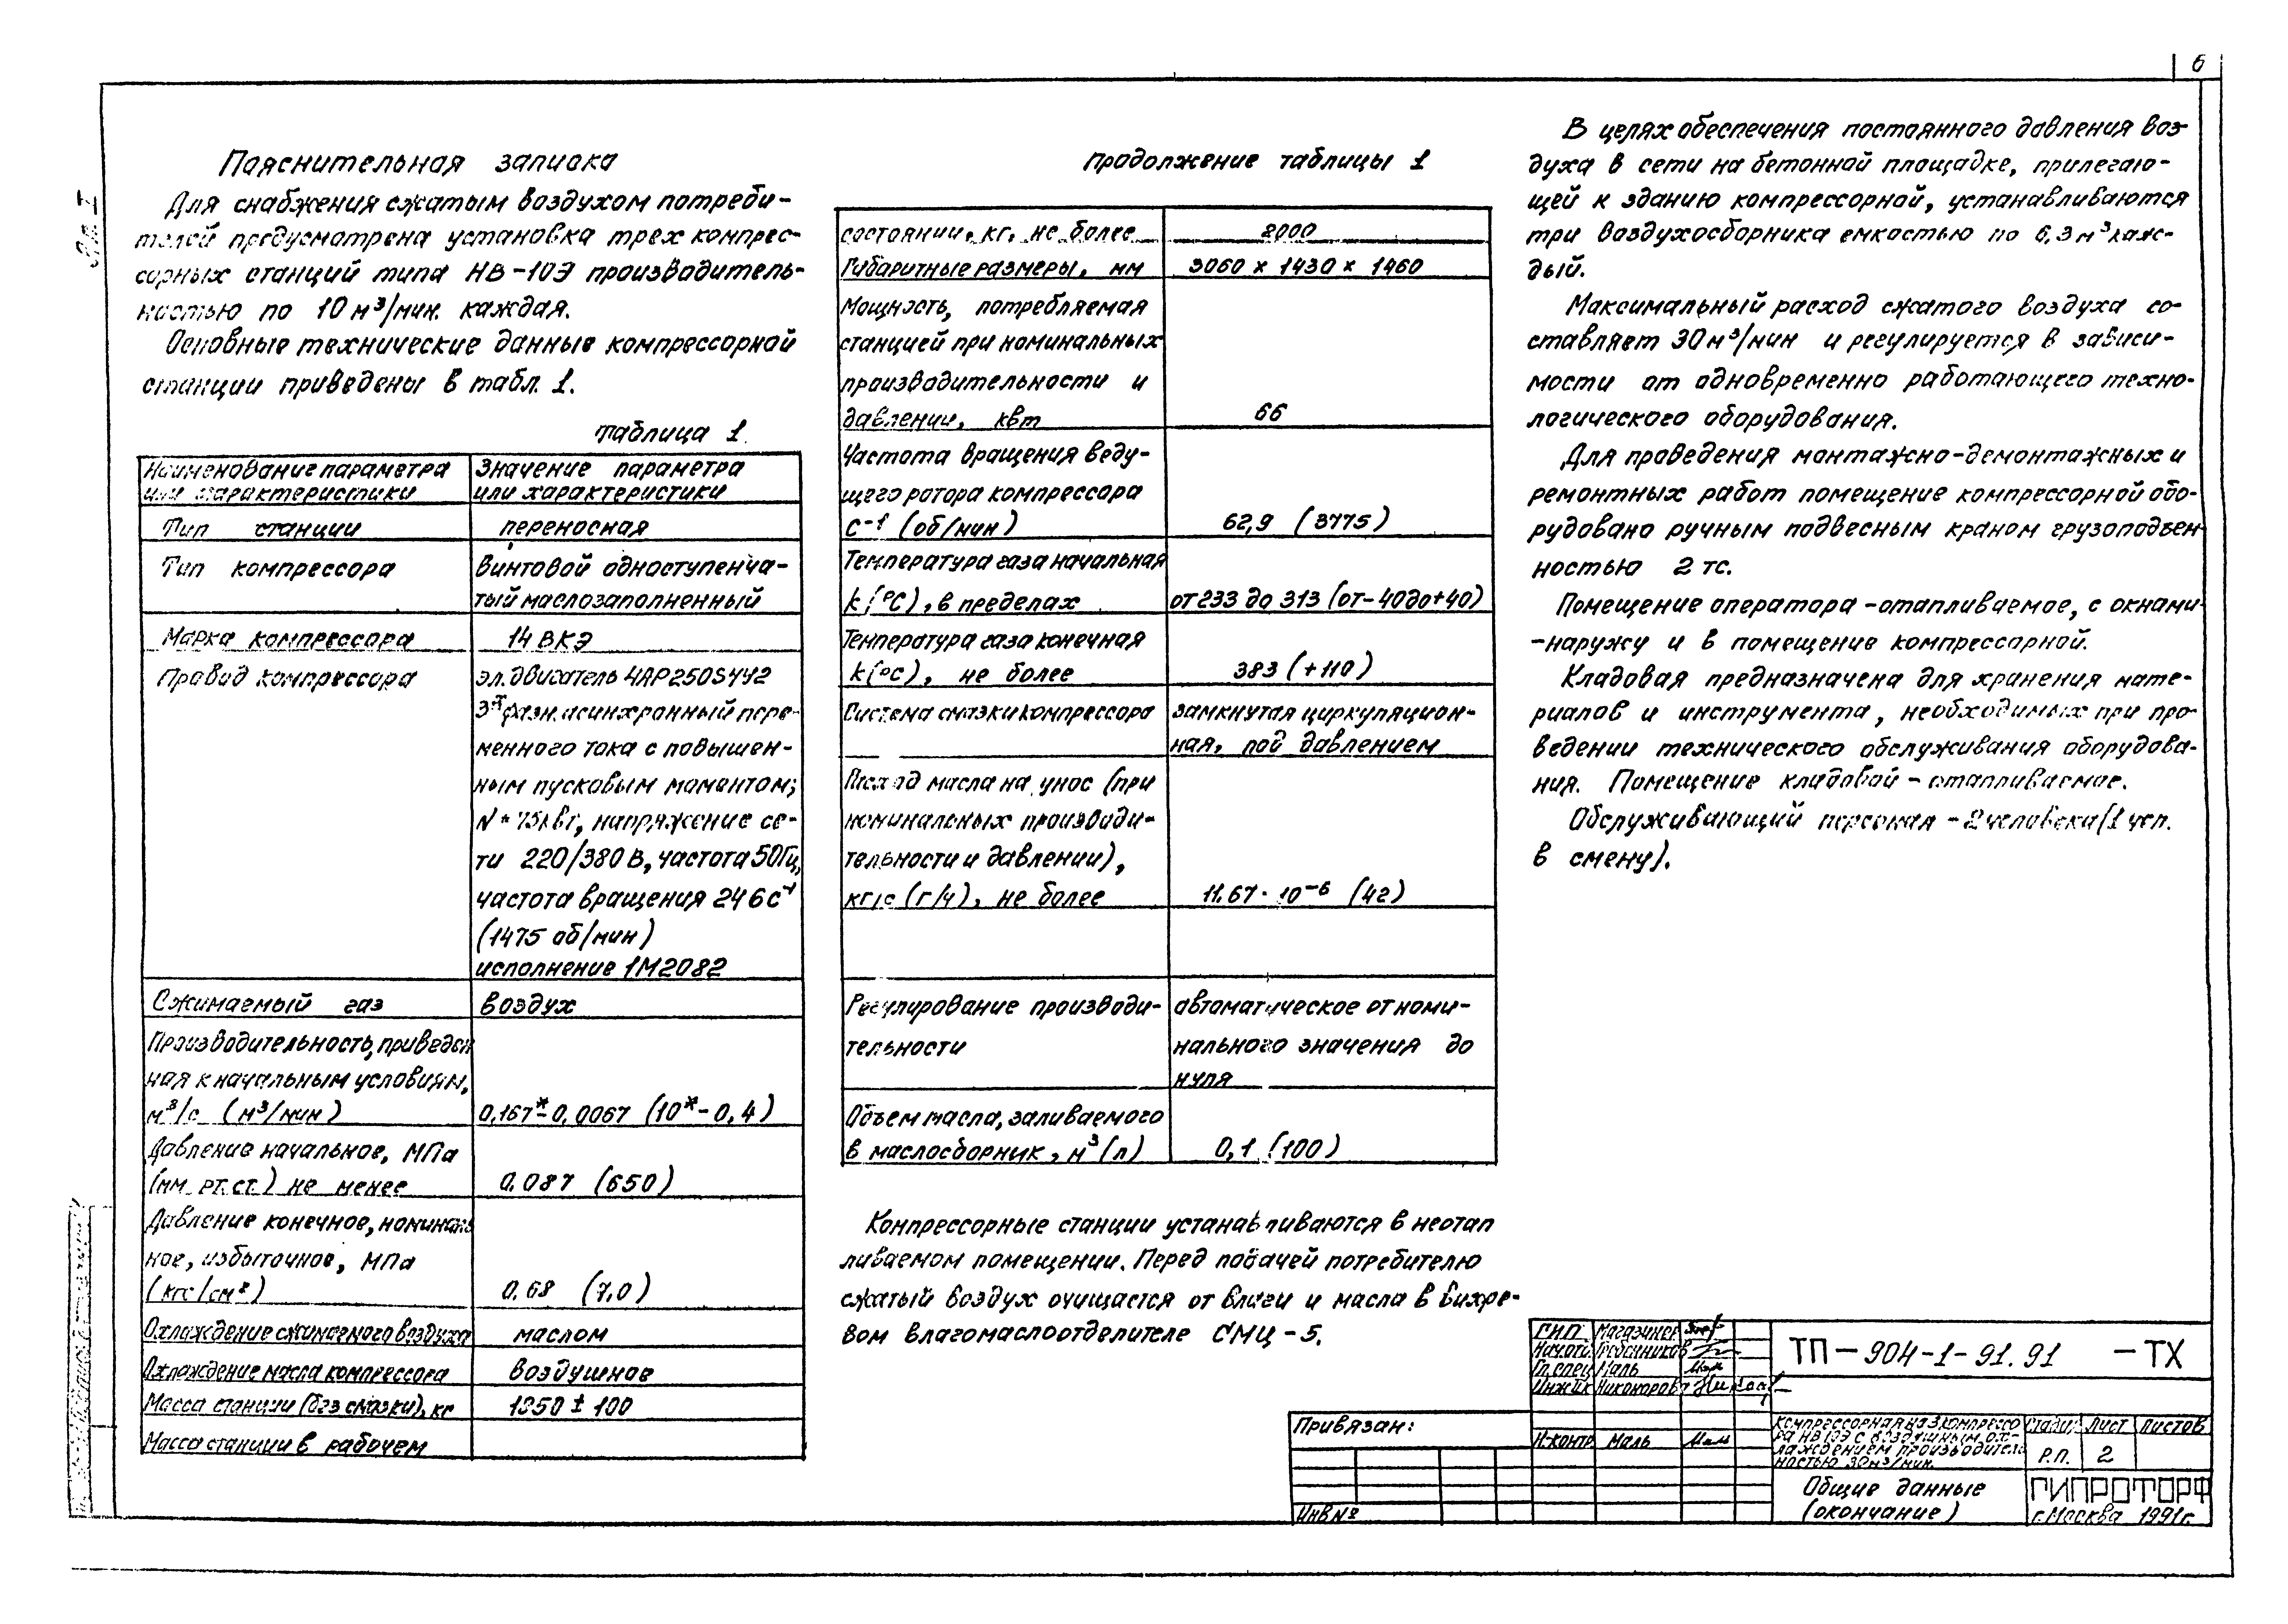 6
Пояснительная записка
Для снабжения сжатым воздухом потреби-
телей предусмотрена установка трех компрес-
сорных станций типа НВ-10Э производитель-
ностью по 10 м³/мин. каждая.
Основные технические данные компрессорной
станции приведены в табл. 1.
таблица 1.
Наименование параметра | Значение параметра
или характеристики | или характеристики
Тип станции | переносная
Тип компрессора | Винтовой одноступенча-
тый маслозаполненный
Марка компрессора | 14ВКЭ
Привод компрессора | эл. двигатель 4АР250S4У2
3х фазн. асинхронный пере-
менного тока с повышен-
ным пусковым моментом;
N = 75кВт, напряжение се-
ти 220/380 В, частота 50Гц,
частота вращения 24 6 с⁻¹
(1475 об/мин)
исполнение 1М2082
Сжимаемый газ | воздух
Производительность, приведен
ная к начальным условиям,
м³/с (м³/мин) | 0,167*-0,0067 (10*-0,4)
Давление начальное, МПа
(мм рт. ст.) не менее | 0,087 (650)
Давление конечное, номиналь
ное, избыточное, МПа
(кгс/см²) | 0,68 (7,0)
Охлаждение сжимаемого воздуха | маслом
Охлаждение масла компрессора | воздушное
Масса станции (без смазки), кг | 1850 ± 100
Масса станции в рабочем
продолжение таблицы 1
состоянии, кг, не более | 2000
Габаритные размеры, мм | 3060 х 1430 х 1460
Мощность, потребляемая
станцией при номинальных
производительности и
давлении, квт | 66
Частота вращения веду-
щего ротора компрессора
с⁻¹ (об/мин) | 62,9 (3775)
Температура газа начальная
к (°С), в пределах | от 233 до 313 (от-40до+40)
Температура газа конечная
к (°С), не более | 383 (+110)
Система смазки компрессора | замкнутая циркуляцион-
ная, под давлением
Расход масла на унос (при
номинальных производи-
тельности и давлении),
кг/с (г/ч), не более | 11,67·10⁻⁶ (42)
Регулирование производи- | автоматическое от номи-
тельности | нального значения до
нуля
Объем масла, заливаемого
в маслосборник, м³ (л) | 0,1 (100)
Компрессорные станции устанавливаются в неотап
ливаемом помещении. Перед подачей потребителю
сжатый воздух очищается от влаги и масла в вихре-
вом влагомаслоотделителе СМЦ-5.
В целях обеспечения постоянного давления воз-
духа в сети на бетонной площадке, прилегаю-
щей к зданию компрессорной, устанавливаются
три воздухосборника емкостью по 6,3 м³ каж-
дый.
Максимальный расход сжатого воздуха со-
ставляет 30м³/мин и регулируется в зависи-
мости от одновременно работающего техно-
логического оборудования.
Для проведения монтажно-демонтажных и
ремонтных работ помещение компрессорной обо-
рудовано ручным подвесным краном грузоподъем
ностью 2 тс.
Помещение оператора - отапливаемое, с окнами
-наружу и в помещение компрессорной.
Кладовая предназначена для хранения мате-
риалов и инструмента, необходимых при про-
ведении технического обслуживания оборудова-
ния. Помещение кладовой - отапливаемое.
Обслуживающий персонал - 2 человека (1 чел.
в смену).
ГИП Магазинер
Гл.спец Маль
Инж IIк Никонорова
Н.контр Маль
ТП-904-1-91.91 -ТХ
Привязан:
Инв №
Компрессорная на 3 компрессо
ра НВ 10Э с воздушным ох-
лаждением производитель
ностью 30м³/мин.
Стадия Лист Листов
Р.П. 2
Общие данные
(окончание)
ГИПРОТОРФ
г. Москва 1991г.